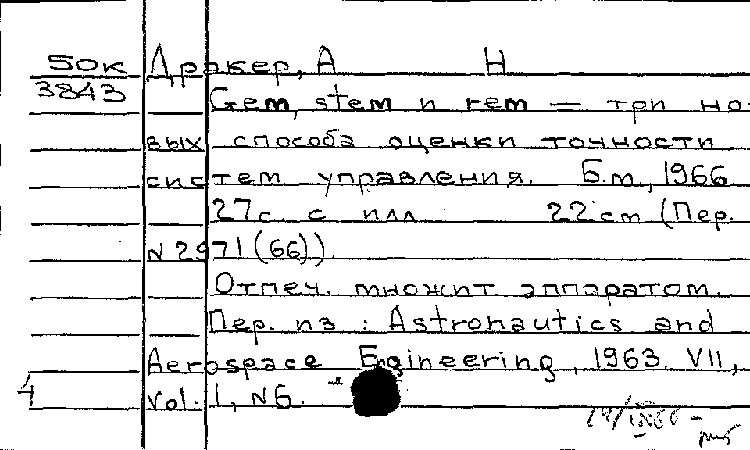 50к Дрэкер, А Н
3843 Gem, stem и rem — три но-
вых способа оценки точности
систем управления. Б.м., 1966
27с с илл 22 см (Пер.
N 2971 (66))
Отпеч. множит аппаратом.
Пер. из: Astronautics and
Aerospace Engineering, 1963 VII,
vol. 1, N6.